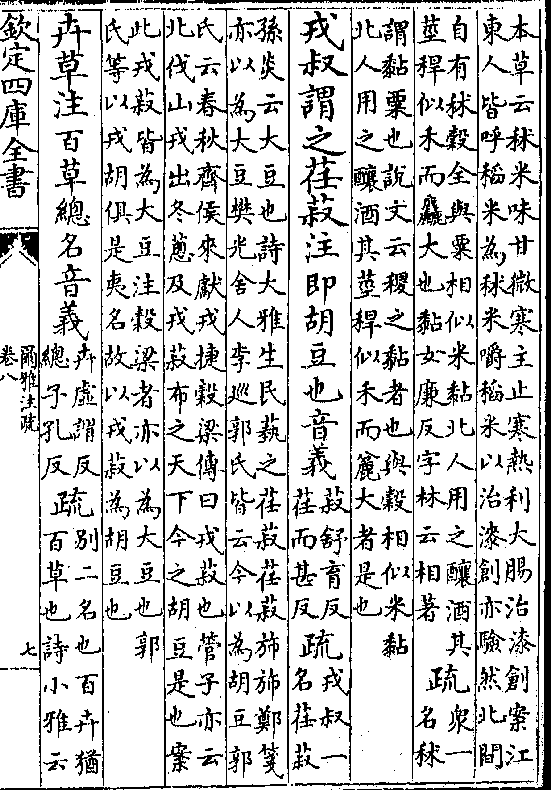 本草云秫米味甘微寒主止寒熱利大腸治漆創案江
東人皆呼稻米為秫米嚼稻米以治漆創亦驗然北間
自有秫穀全與粟相似米黏北人用之釀酒其
莖稈似禾而麤大也黏女廉反字林云相著
疏
衆一
名秫
謂黏粟也說文云稷之黏者也與穀相似米黏
北人用之釀酒其莖稈似禾而麄大者是也
戎叔謂之荏菽注即胡豆也音義
菽舒育反
荏而甚反
疏
戎叔一
名荏菽
孫炎云大豆也詩大雅生民藝之荏菽荏菽旆旆鄭箋
亦以為大豆樊光舍人李巡郭氏皆云今以為胡豆郭
氏云春秋齊侯來獻戎捷穀梁傳曰戎菽也管子亦云
北伐山戎出冬蔥及戎菽布之天下今之胡豆是也案
此戎菽皆為大豆注穀梁者亦以為大豆也郭
氏等以戎胡俱是夷名故以戎菽為胡豆也
卉草注百草總名音義
卉虛謂反
總子孔反
疏
別二名也百卉猶
百草也詩小雅云
欽定四庫全書
爾雅注疏
卷八
七